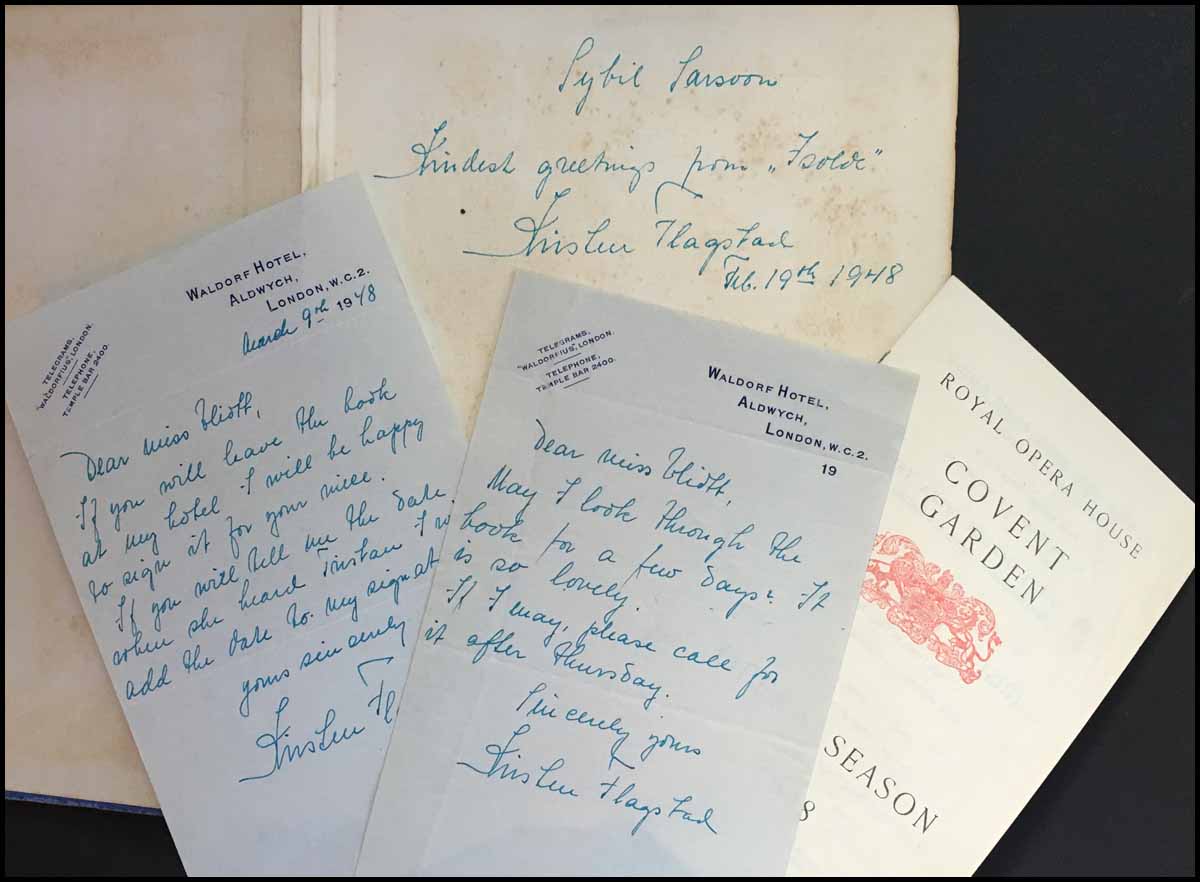 Sybil Sarsoon
Kindest greetings from „Isolde"
Kirsten Flagstad
Feb. 19th 1948
WALDORF HOTEL,
ALDWYCH,
LONDON, W.C.2.
TELEGRAMS,
"WALDORFIUS", LONDON.
TELEPHONE,
TEMPLE BAR 2400.
March 9th 1948
Dear Miss Eliott,
If you will leave the book
at my hotel I will be happy
to sign it for your niece.
If you will tell me the date
when she heard Tristan I w
add the date to my signat
yours sincerely
Kirsten Fl
TELEGRAMS,
"WALDORFIUS", LONDON.
TELEPHONE,
TEMPLE BAR 2400.
WALDORF HOTEL,
ALDWYCH,
LONDON, W.C.2.
19
Dear Miss Eliott,
May I look through the
book for a few days? It
is so lovely.
If I may, please call for
it after Thursday.
Sincerely yours
Kirsten Flagstad
ROYAL OPERA HOUSE
COVENT
GARDEN
SEASON
8